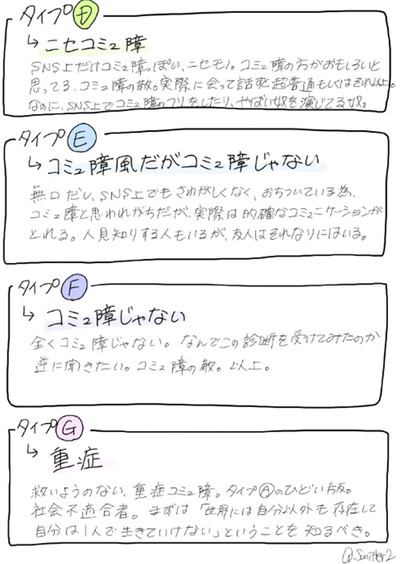 タイプⒹ
↳ニセコミュ障
SNS上だけコミュ障っぽい、ニセモノ。コミュ障の方がおもしろいと
思ってる。コミュ障の敵。実際に会って話すと超普通もしくはそれ以上。
なのに、SNS上でコミュ障のフリをしたり、やばい奴を演じてる奴。
タイプⒺ
↳コミュ障風だがコミュ障じゃない
無口だし、SNS上でもさわがしくなく、おちついている為、
コミュ障と思われがちだが、実際は的確なコミュニケーションが
とれる。人見知りする人もいるが、友人はそれなりにはいる。
タイプⒻ
↳コミュ障じゃない
全くコミュ障じゃない。なんでこの診断を受けてみたのか
逆に聞きたい。コミュ障の敵。以上。
タイプⒼ
↳重症
救いようのない、重症コミュ障。タイプⒶのひどい版。
社会不適合者。まずは「世界には自分以外も存在して
自分は1人で生きていけない」ということを知るべき。